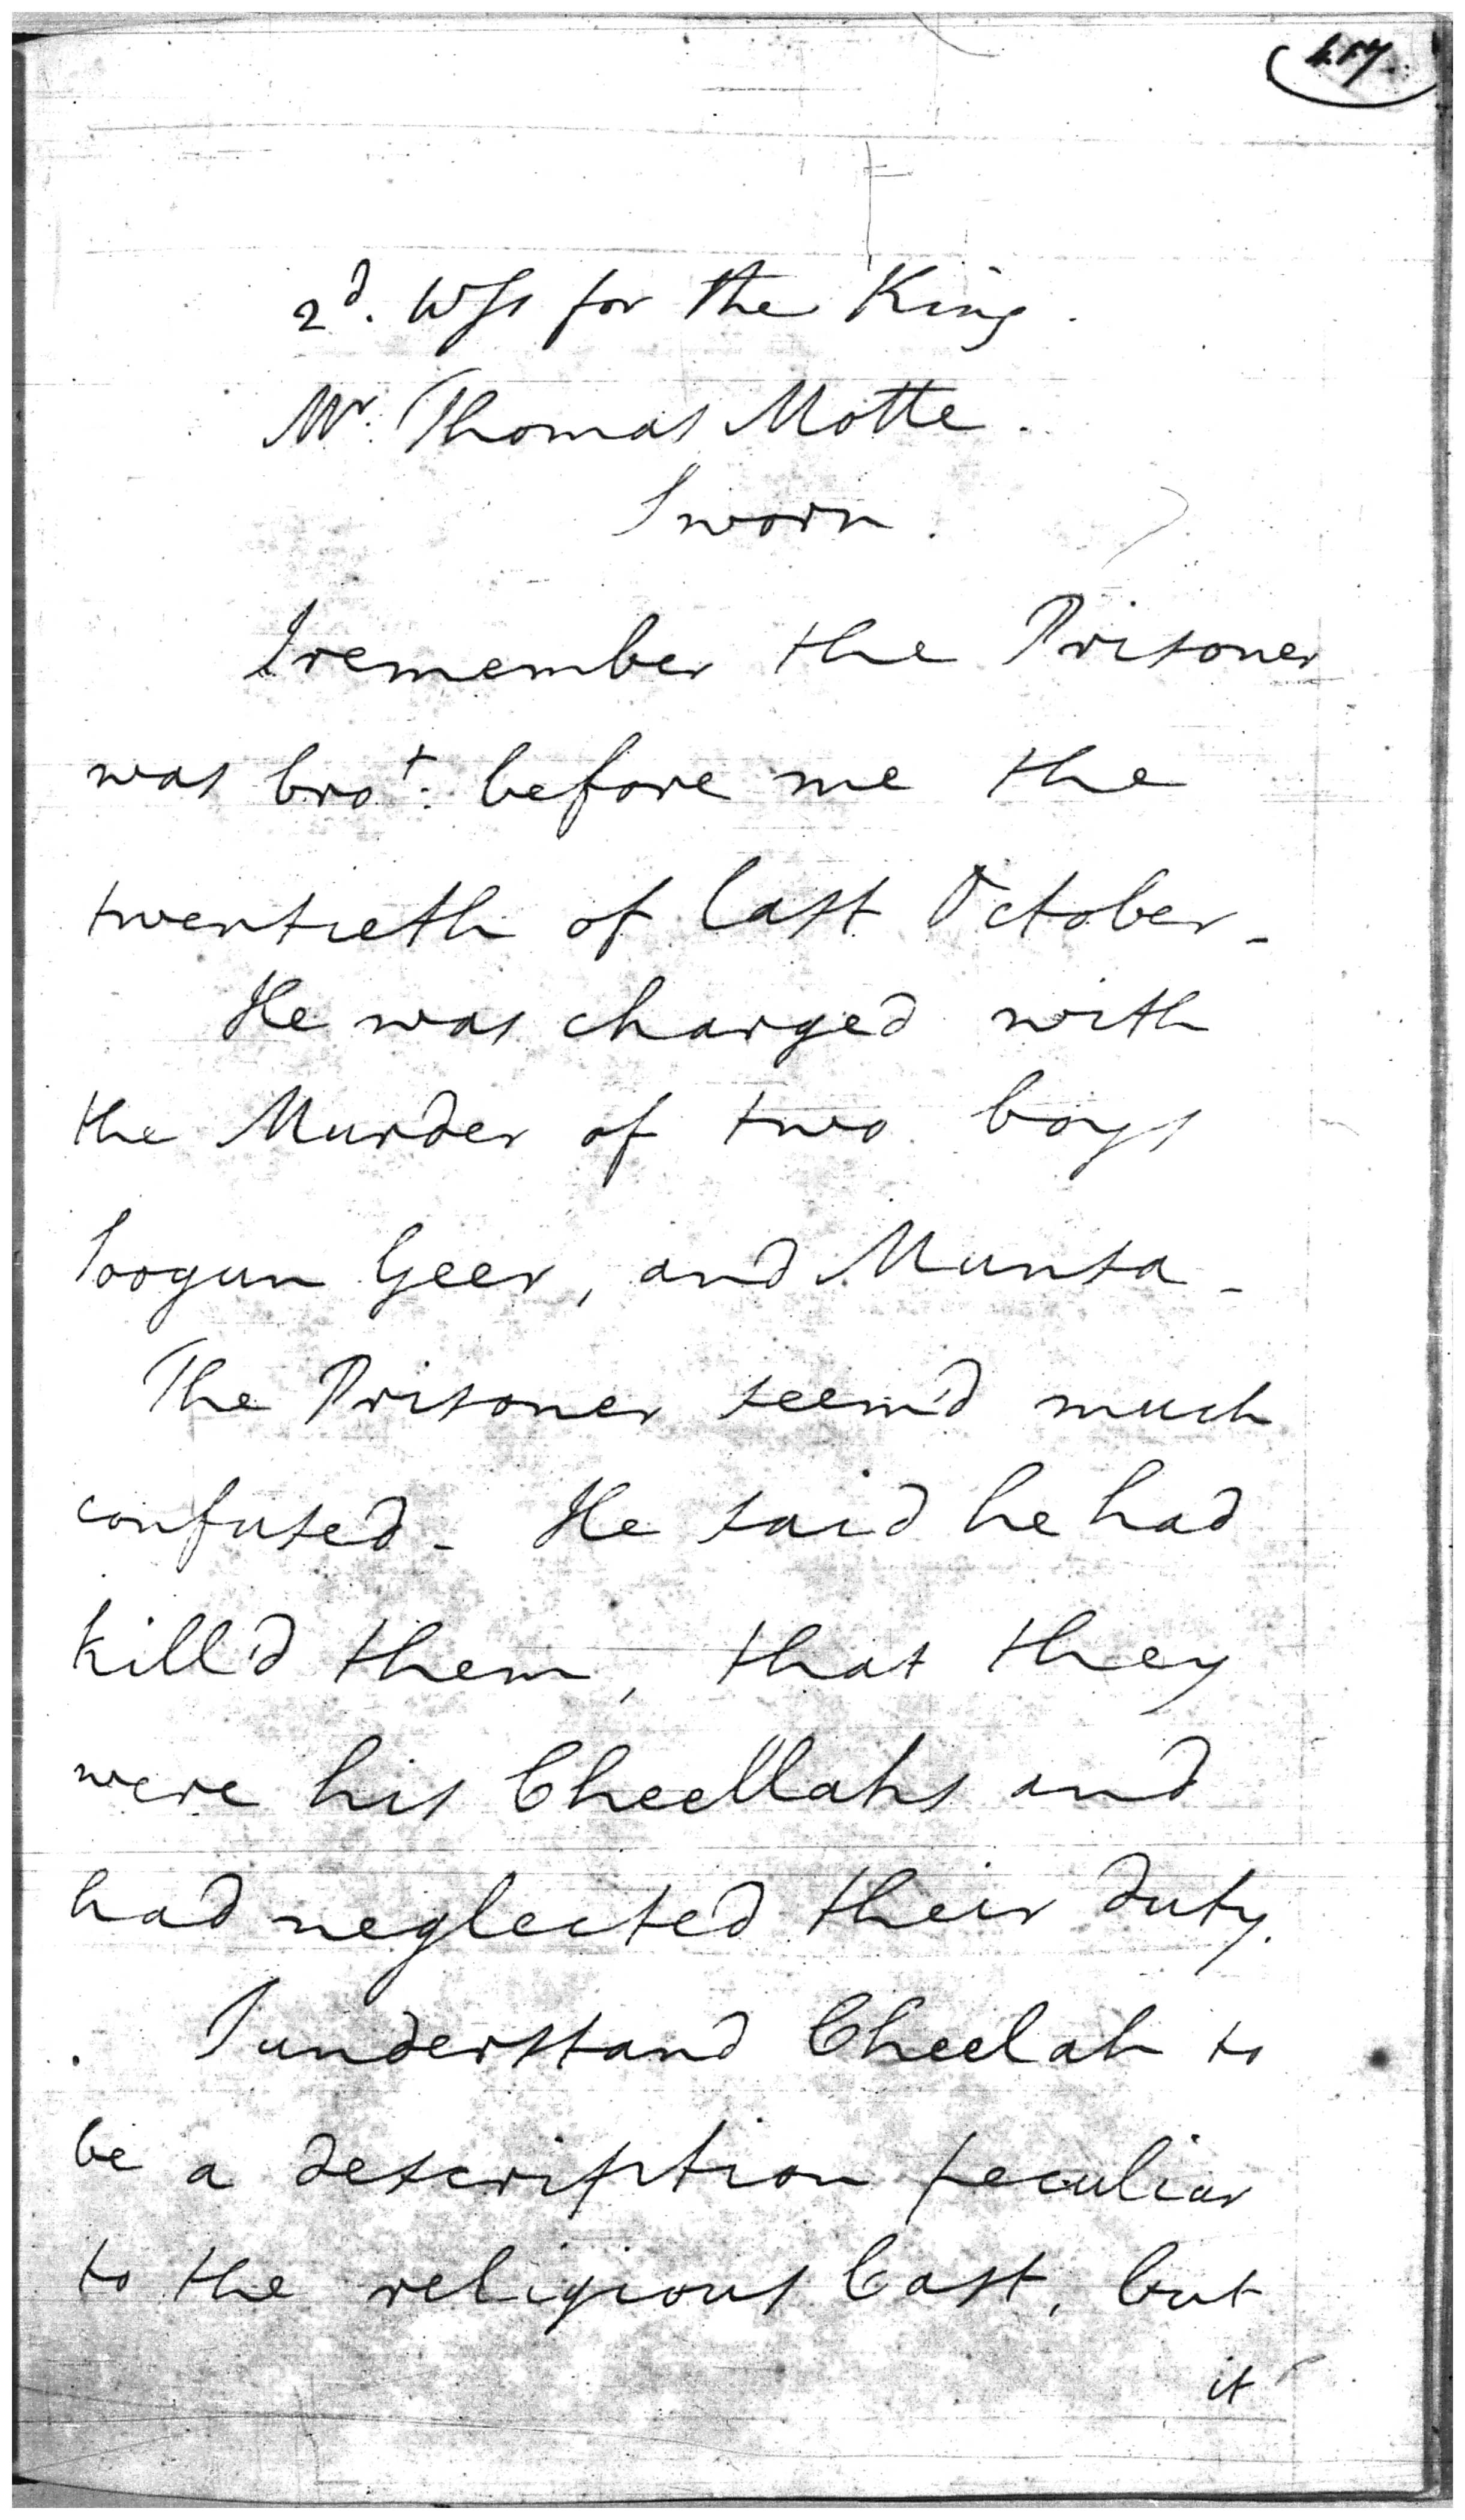 2d. Wss for the King.
Mr. Thomas Motte.
Sworn.
I remember the Prisoner
was brot. before me the
twentieth of last October -
He was charged with
the Murder of two boys
Geer, and Munsa -
The Prisoner seem'd much
confused - He said he had
kill'd them, that they
were his Cheellahs and
had neglected their duty.
I understand Cheelah to
be a description peculiar
to the religious Cast, but
it